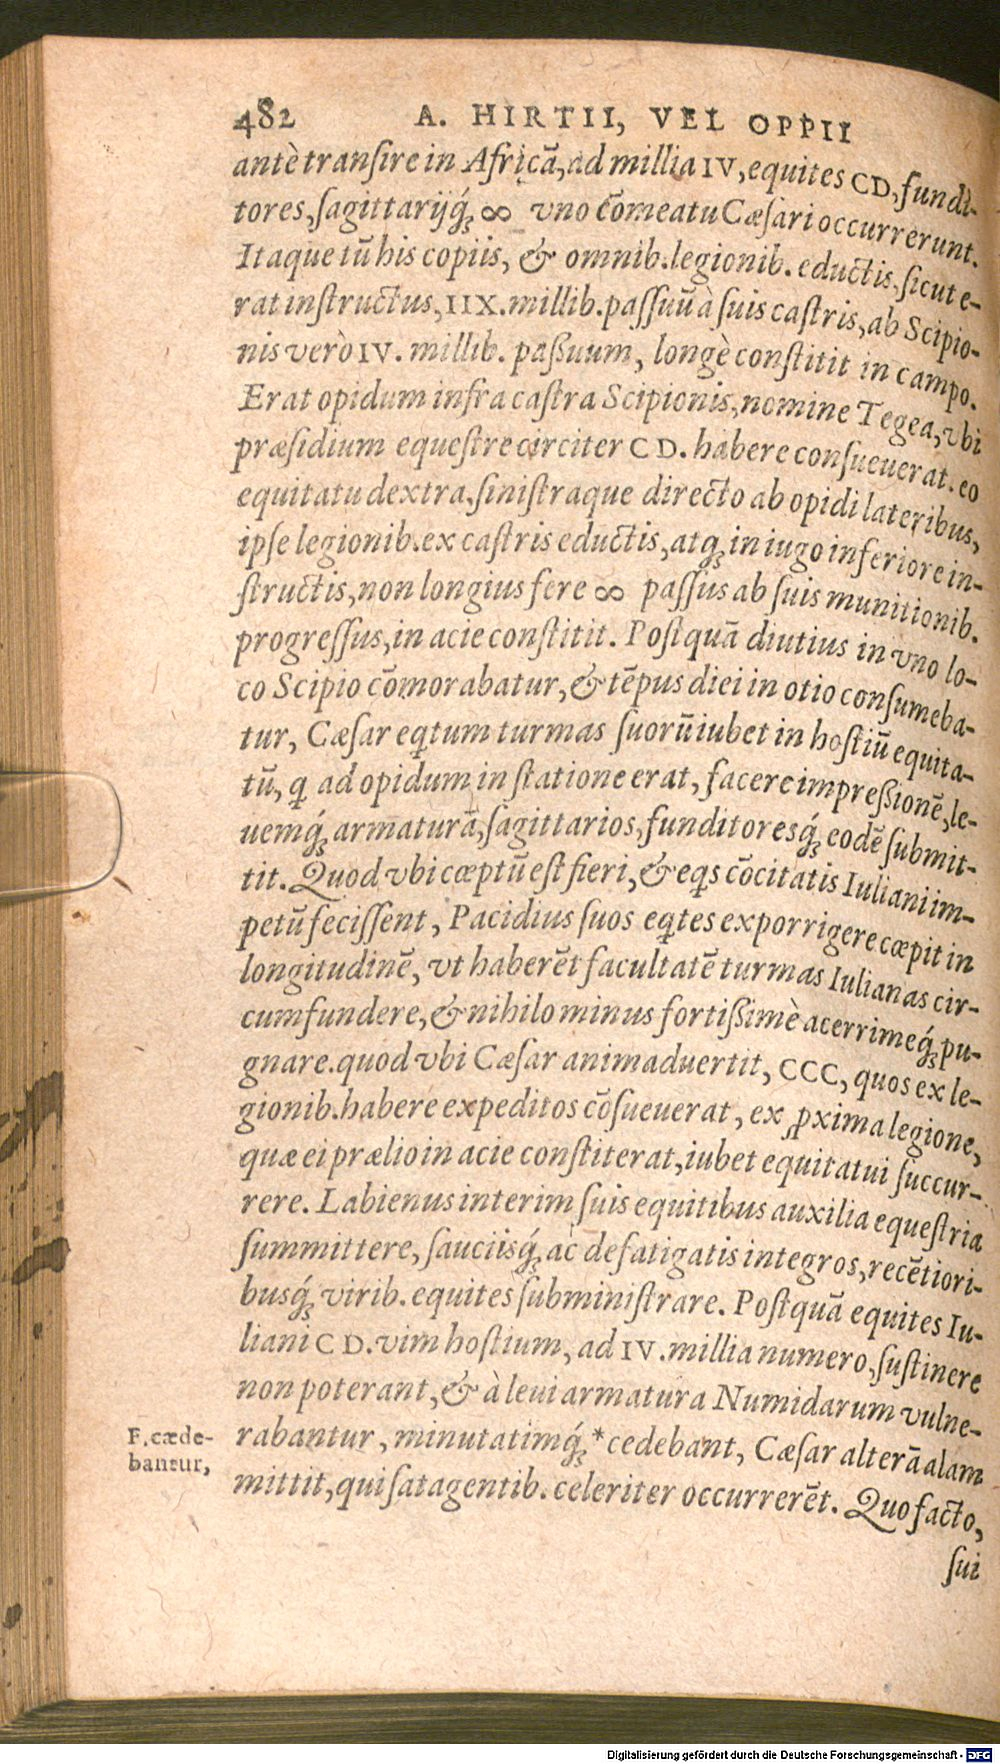 482 A. HIRTII, VEL OPPII
antè transire in Africā, ad millia IV, equites CD, fundi-
tores, sagittarijq́; ∞ vno cōmeatu Cæsari occurrerunt.
Itaque tū his copiis, & omnib. legionib. eductis, sicut e-
rat instructus, IIX. millib. passuū à suis castris, ab Scipio-
nis verò IV. millib. paßuum, longè constitit in campo.
Erat opidum infra castra Scipionis, nomine Tegea, vbi
præsidium equestre circiter CD. habere consueuerat. eo
equitatu dextra, sinistraque directo ab opidi lateribus,
ipse legionib. ex castris eductis, atq; in iugo inferiore in-
structis, non longius fere ∞ passus ab suis munitionib.
progressus, in acie constitit. Postquā diutius in vno lo-
co Scipio cōmorabatur, & tēpus diei in otio consumeba-
tur, Cæsar eqtum turmas suorū iubet in hostiū equita-
tū, q ad opidum in statione erat, facere impreßionē, le-
uemq́; armaturā, sagittarios, funditoresq́; eodē submit-
tit. Quod vbi cœptū est fieri, & eqs cōcitatis Iuliani im-
petū fecissent, Pacidius suos eqtes exporrigere cœpit in
longitudinē, vt haberēt facultatē turmas Iulianas cir-
cumfundere, & nihilo minus fortißimè acerrimeq́; pu-
gnare. quod vbi Cæsar animaduertit, CCC, quos ex le-
gionib. habere expeditos cōsueuerat, ex ꝓxima legione,
quæ ei prælio in acie constiterat, iubet equitatui succur-
rere. Labienus interim suis equitibus auxilia equestria
summittere, sauciisq́; ac defatigatis integros, recētiori-
busq́; virib. equites subministrare. Postquā equites Iu-
liani CD. vim hostium, ad IV. millia numero, sustinere
non poterant, & à leui armatura Numidarum vulne-
rabantur, minutatimq́; *cedebant, Cæsar alterā alam
mittit, qui satagentib. celeriter occurrerēt. Quo facto,
sui
F. cæde-
bantur,
Digitalisierung gefördert durch die Deutsche Forschungsgemeinschaft - DFG